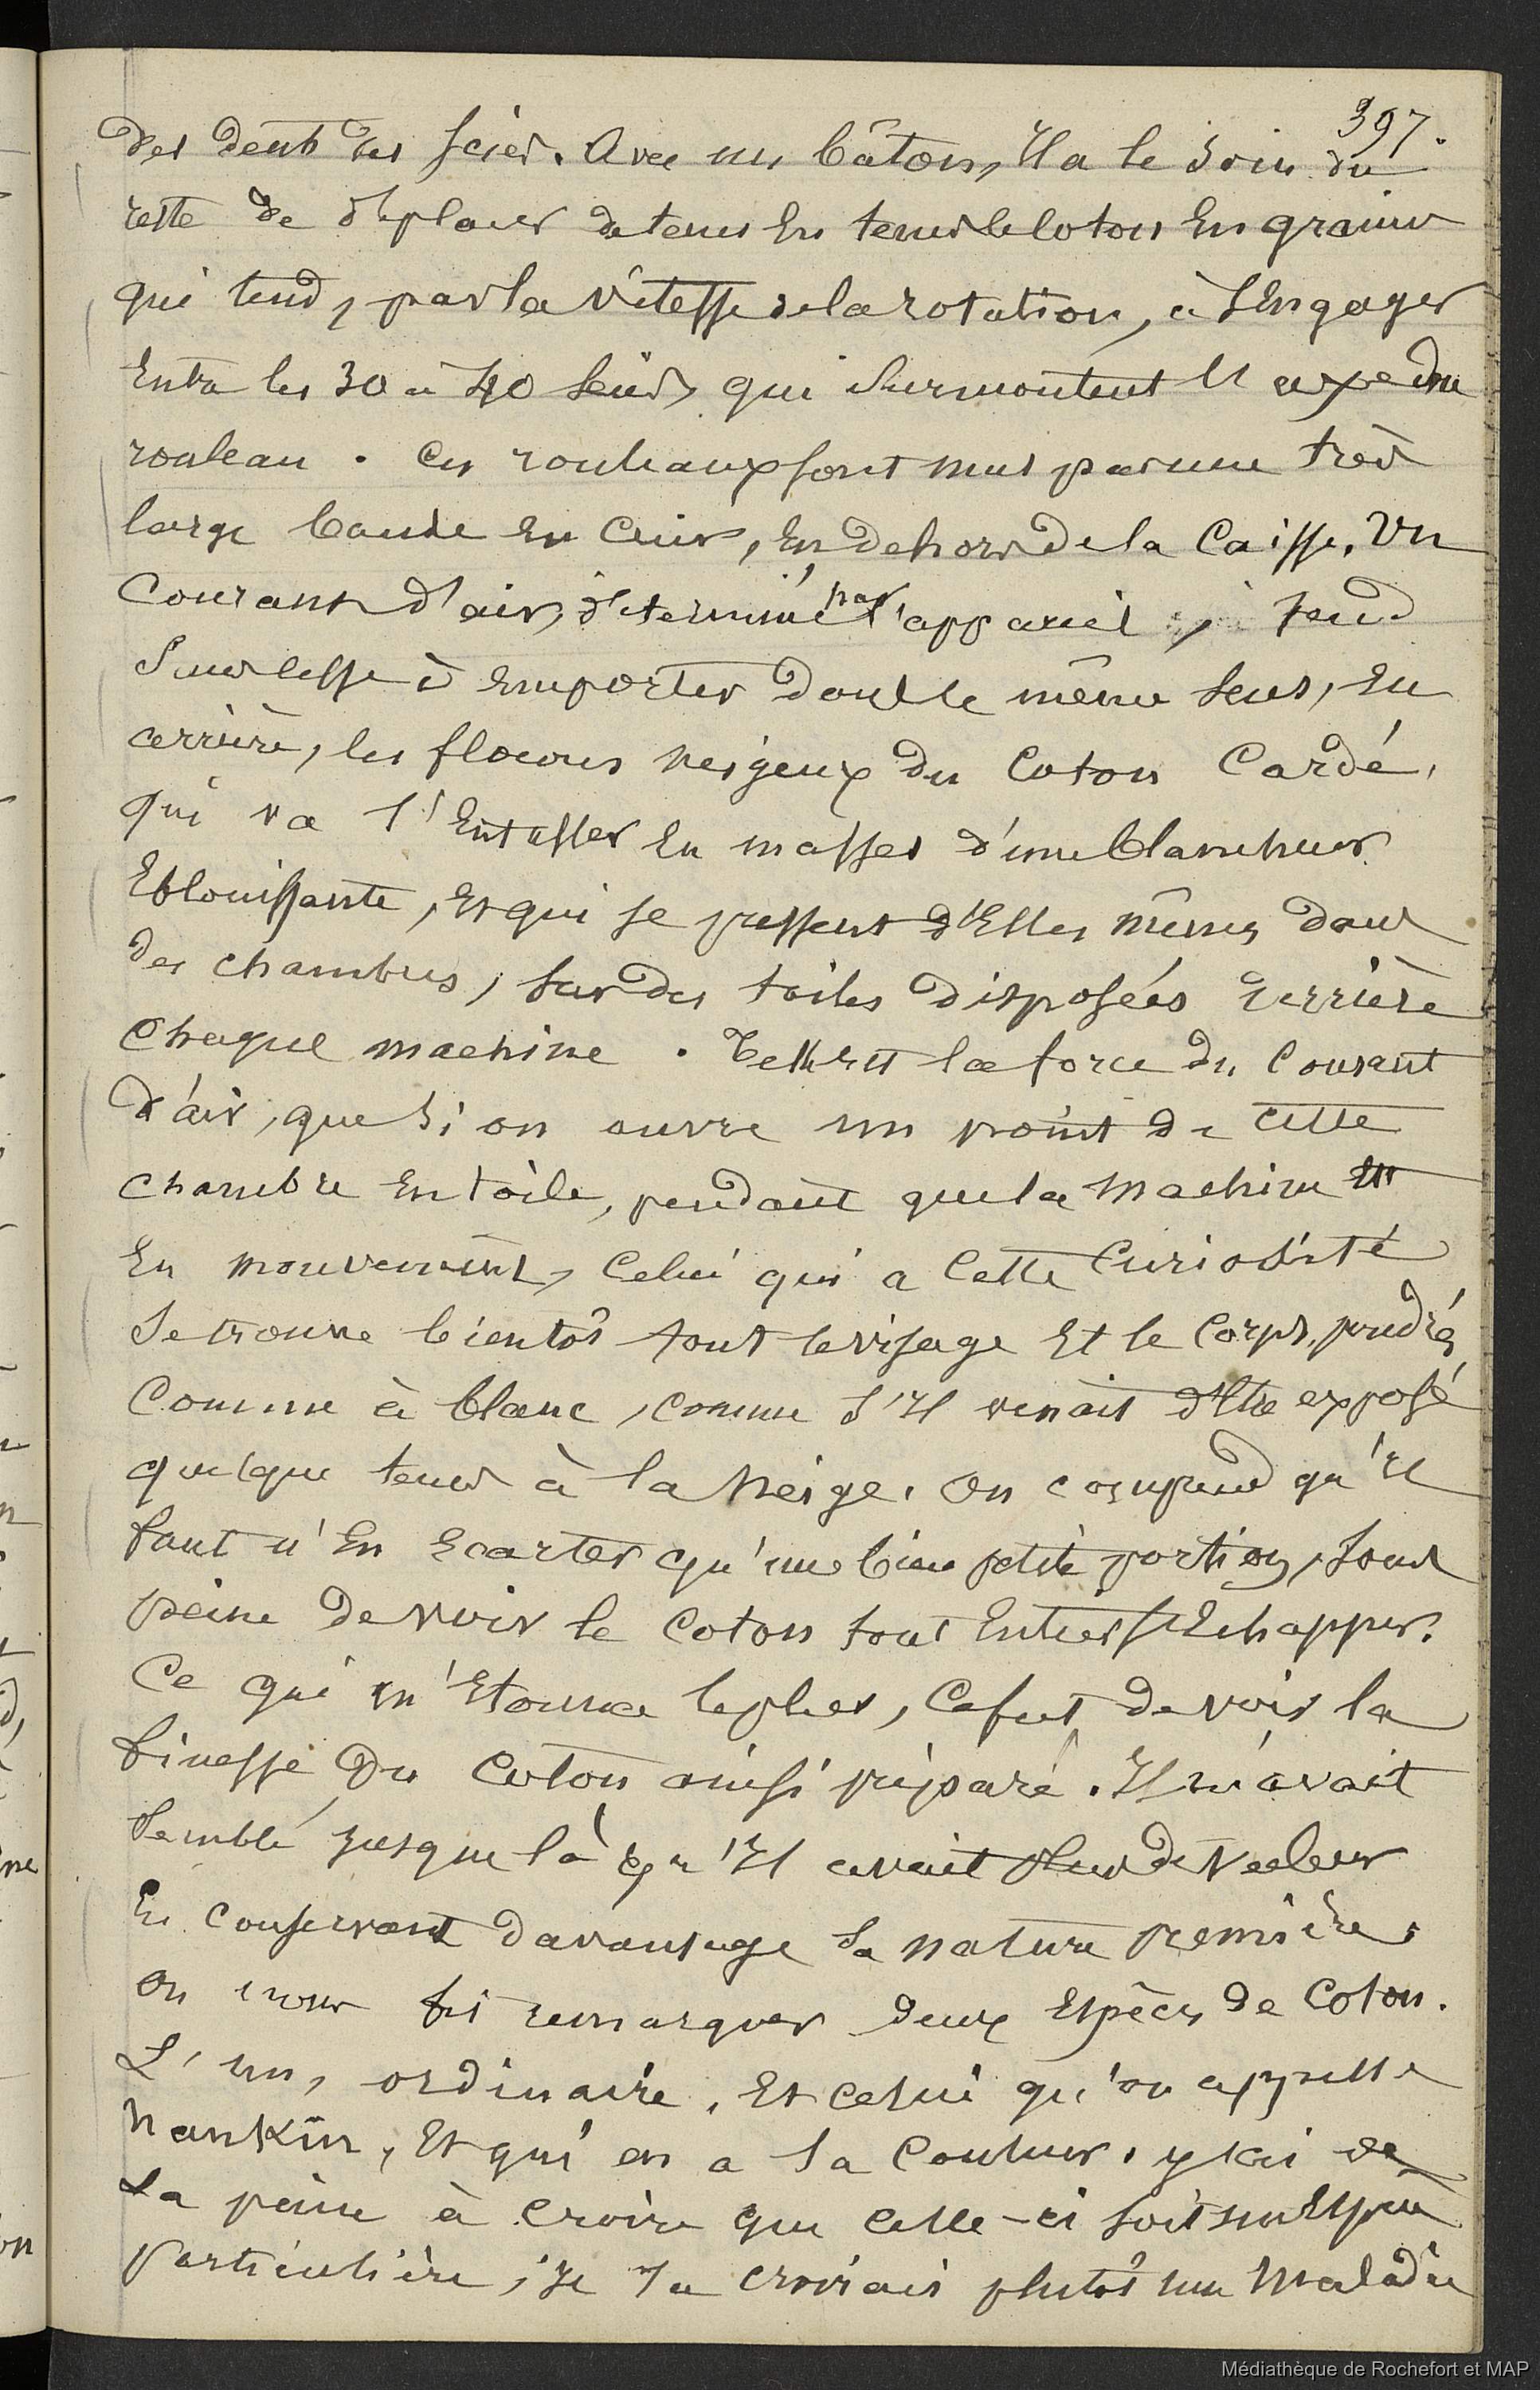 397.
des dents des scies. Avec un bâton, Il a le soin du
reste de déplacer de tems En tems le Coton En graines
qui tend, par la vitesse de la rotation, à s'Engager
Entre les 30 à 40 scies, qui surmontent l'axe du
rouleau. Ces rouleaux sont mus par une très
large bande En Cuir, En dehors de la Caisse. Un
Courant d'air, déterminé par l'appareil, tend
Sans cesse à Emporter dans le même sens, En
arrière, les flocons neigeux du Coton Cardé,
qui va s'Entasser En masses d'une blancheur
Eblouissante, Et qui se pressent d'Elles mêmes dans
des chambres, sur des toiles disposées derrière
Chaque machine. Telle est la force du Courant
d'air, que si on ouvre un point de cette
chambre En toile, pendant que la machine Est
En mouvement, Celui qui a Cette Curiosité
Se trouve bientôt tout le visage Et le Corps poudrés
Comme à blanc, comme s'Il venait d'Etre exposé
quelque tems à la neige. On comprend qu'Il
faut n'En Ecarter qu'une bien petite portion, sous
peine de voir le Coton tout Entier s'Echapper.
Ce qui m'Etonna le plus, Ce fut de voir la
finesse du Coton ainsi préparé. Il m'avait
Semblé jusque là qu'Il avait plus de valeur
En Conservant davantage sa nature première.
On nous fit remarquer deux Espèces de Coton.
L'un, ordinaire, Et celui qu'on appelle
nankin, Et qui en a la Couleur. j'ai de
La peine à Croire que Celle-ci soit une Espèce
particulière, je la croirais plutôt une maladie
Médiathèque de Rochefort et MAP